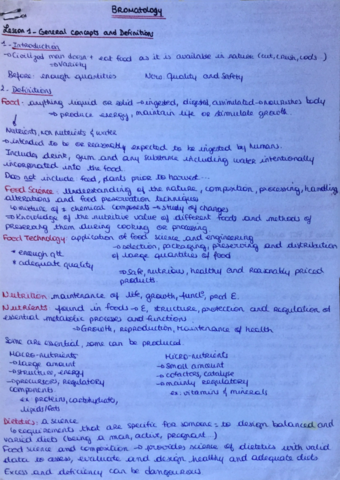 BROMATOLOGY
Lesson 1 - General Concepts and Definitions
1 - Introduction
→ Civilized man doesn't eat food as it is available in nature (cut, cook, cools...)
→ variety
Before: enough quantities Now: Quality and Safety
2. Definitions
Food: anything liquid or solid → ingested, digested, assimilated → nourishes body
→ produce energy, maintain life or stimulate growth
Nutrients, non nutrients & water
→ intended to be or reasonably expected to be ingested by humans.
Includes drink, gum and any substance including water intentionally
incorporated into the food
Does not include feed, plants prior to harvest...
Food Science: Understanding of the nature, composition, processing, handling
alterations and food preservation techniques
→ mixture of ≠ chemical components → study of changes
→ Knowledge of the nutritive value of different foods and methods of
preserving them during cooking or processing
Food Technology: application of food science and engineering
→ selection, packaging, preserving and distribution
of large quantities of food
* enough qtt
* adequate quality
→ Safe, nutritious, healthy and reasonably priced
products.
Nutrition: maintenance of life, growth, funct°, prod E.
Nutrients: found in foods → E, structure, protection and regulation of
essential metabolic processes and functions
→ Growth, reproduction, maintenance of health
Some are essential, some can be produced.
Macro-nutrients Micro-nutrients
→ large amount → Small amount
→ structure, energy → cofactors, catalyse
→ precursors, regulatory → mainly regulatory
components
ex: proteins, carbohydrates, ex: vitamins & minerals
lipids/fats
Dietetics: a science
↳ requirements that are specific for someone: to design balanced and
varied diets (being a man, active, pregnant...)
Food science and composition → provides science of dietetics with valid
data to assess, evaluate and design healthy and adequate diets
Excess and deficiency can be dangerous